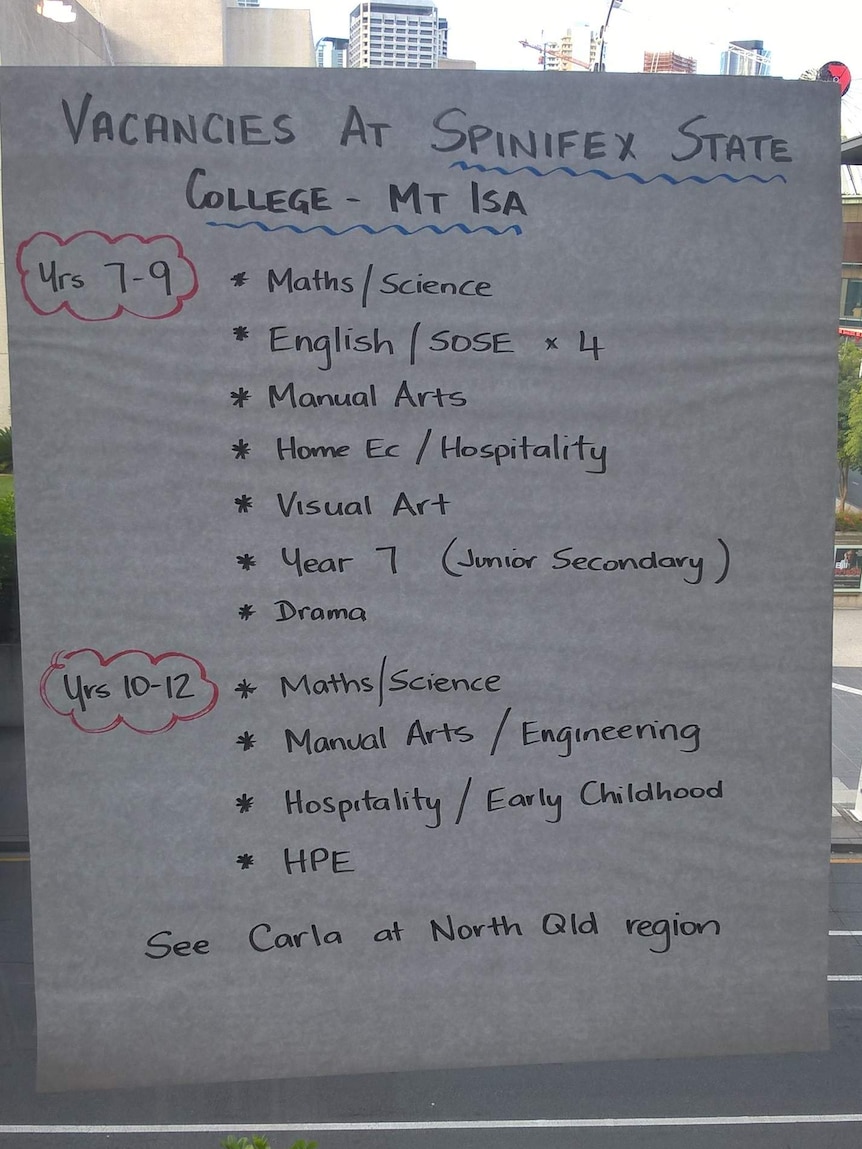 VACANCIES AT SPINIFEX STATE
COLLEGE - MT ISA
Yrs 7-9
* Maths/Science
* English / SOSE × 4
* Manual Arts
* Home Ec / Hospitality
* Visual Art
* Year 7 (Junior Secondary)
* Drama
Yrs 10-12
* Maths/Science
* Manual Arts / Engineering
* Hospitality / Early Childhood
* HPE
See Carla at North Qld region